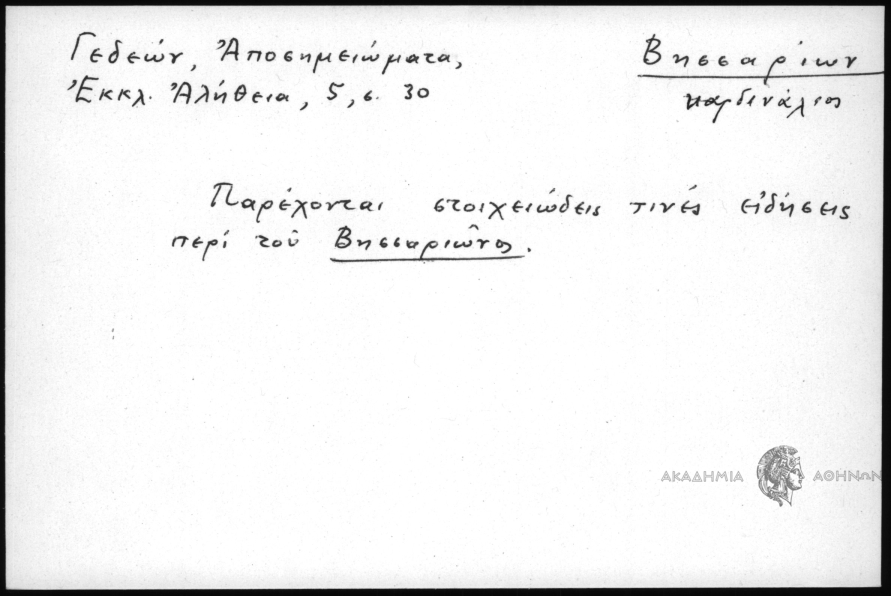 Γεδεών, Ἀποσημειώματα,
Ἐκκλ. Ἀλήθεια, 5, σ. 30
Βησσαρίων
καρδινάλιος
Παρέχονται στοιχειώδεις τινές εἰδήσεις
περί τοῦ Βησσαριῶνος.
ΑΚΑΔΗΜΙΑ ΑΘΗΝΩΝ